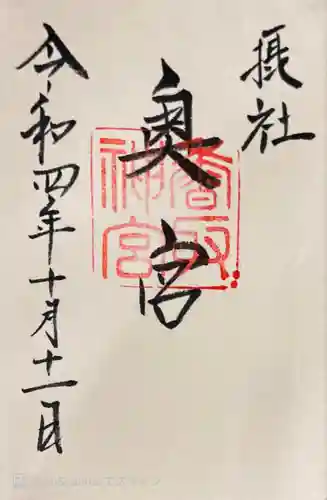 摂社
奥宮
香取
神宮
令和四年十月十一日